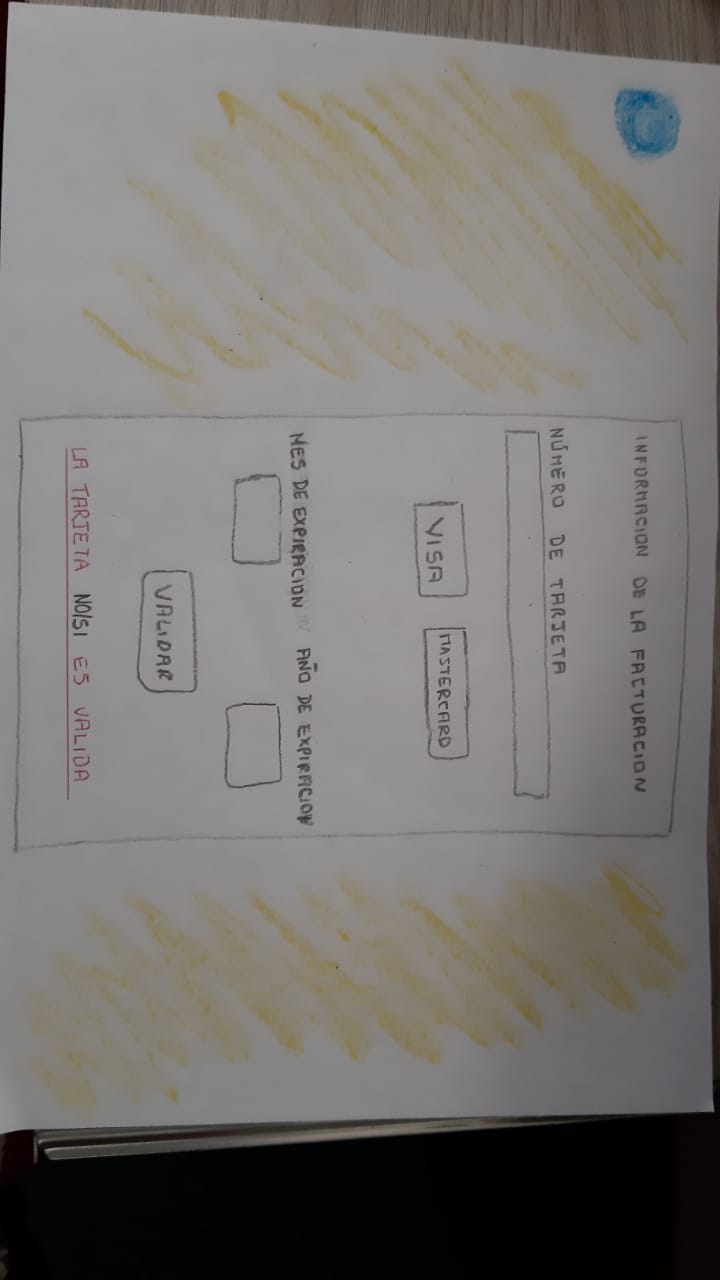 INFORMACION DE LA FACTURACION
NÚMERO DE TARJETA
VISA
MASTERCARD
MES DE EXPIRACION
AÑO DE EXPIRACION
VALIDAR
LA TARJETA NO/SI ES VALIDA